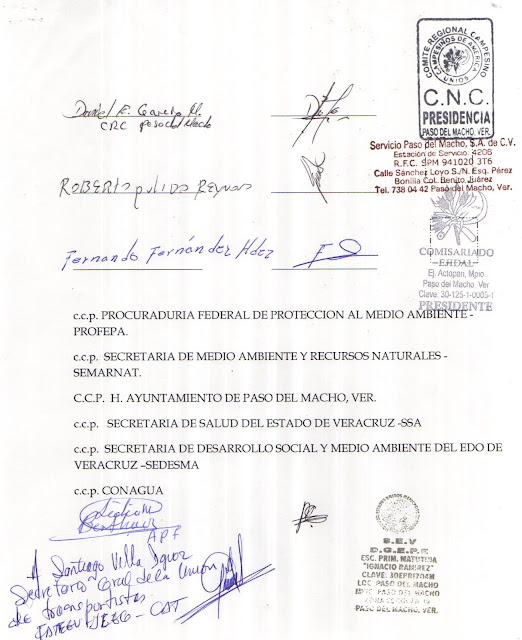 COMITE REGIONAL CAMPESINO
CAMPESINOS DE AMERICA
UNIOS
C.N.C.
PRESIDENCIA
PASO DEL MACHO, VER.
Daniel F. García M.
CRC paso del Macho
Servicio Paso del Macho, S.A. de C.V.
Estación de Servicio: 4206
R.F.C. SPM 941020 3T6
Calle Sánchez Loyo S/N. Esq. Pérez
Bonilla Col. Benito Juárez
Tel. 738 04 42 Paso del Macho, Ver.
ROBERTO pulido Reynos
COMISARIADO
EJIDAL
Ej. Actopan, Mpio
Paso del Macho Ver
Clave: 30-125-1-0005-1
PRESIDENTE
Fernando Fernández Hdez
c.c.p. PROCURADURIA FEDERAL DE PROTECCION AL MEDIO AMBIENTE -
PROFEPA.
c.c.p. SECRETARIA DE MEDIO AMBIENTE Y RECURSOS NATURALES -
SEMARNAT.
C.C.P. H. AYUNTAMIENTO DE PASO DEL MACHO, VER.
c.c.p. SECRETARIA DE SALUD DEL ESTADO DE VERACRUZ -SSA
c.c.p. SECRETARIA DE DESARROLLO SOCIAL Y MEDIO AMBIENTE DEL EDO DE
VERACRUZ -SEDESMA
c.c.p. CONAGUA
APF
S.E.V
D.G.E.P.E
ESC. PRIM. MATUTINA
"IGNACIO RAMIREZ"
CLAVE: 30EPR1204N
LOC. PASO DEL MACHO
MPIO. PASO DEL MACHO
PASO DEL MACHO, VER.
Santiago Villa
Secretario Gral de la Unión
de transportistas
CAT